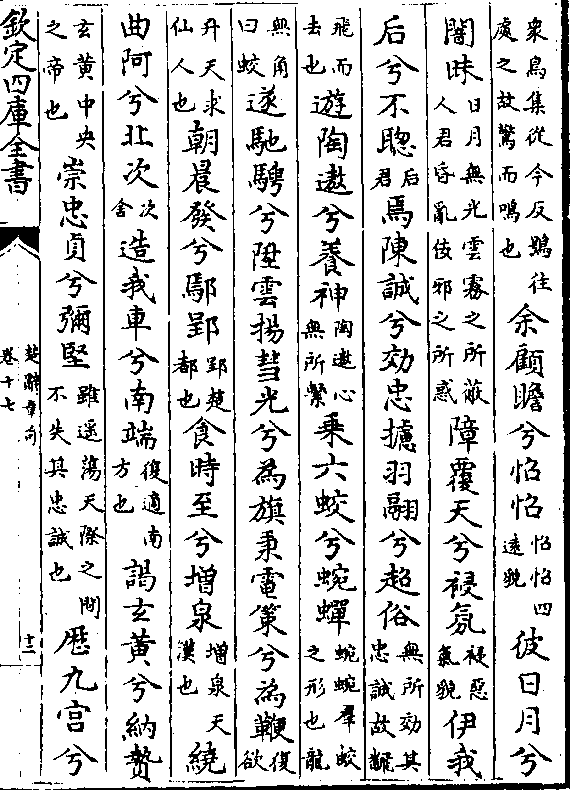 衆鳥集從今反鴞往處之故驚而鳴也余顧瞻兮怊怊怊怊四遠貌彼日月兮
闇昧日月無光雲霧之所蔽人君昏亂佞邪之所惑障覆天兮祲氛祲惡氣貌伊我
后兮不聰后君焉陳誠兮効忠攄羽翮兮超俗無所効其忠誠故翻
飛而去也遊陶遨兮養神陶遨心無所繫乗六蛟兮蜿蟬蜿蜿羣蛟之形也龍
無角曰蛟遂馳騁兮陞雲揚彗光兮為旗秉電策兮為鞭復欲
升天求仙人也朝晨發兮鄢郢郢楚都也食時至兮增泉增泉天漢也繞
曲阿兮北次次舍造我車兮南端復適南方也謁玄黄兮納贄
玄黄中央之帝也崇忠貞兮彌堅雖遥蕩天際之間不失其忠誠也歴九宫兮
欽定四庫全書
楚辭章句
卷十七
十二